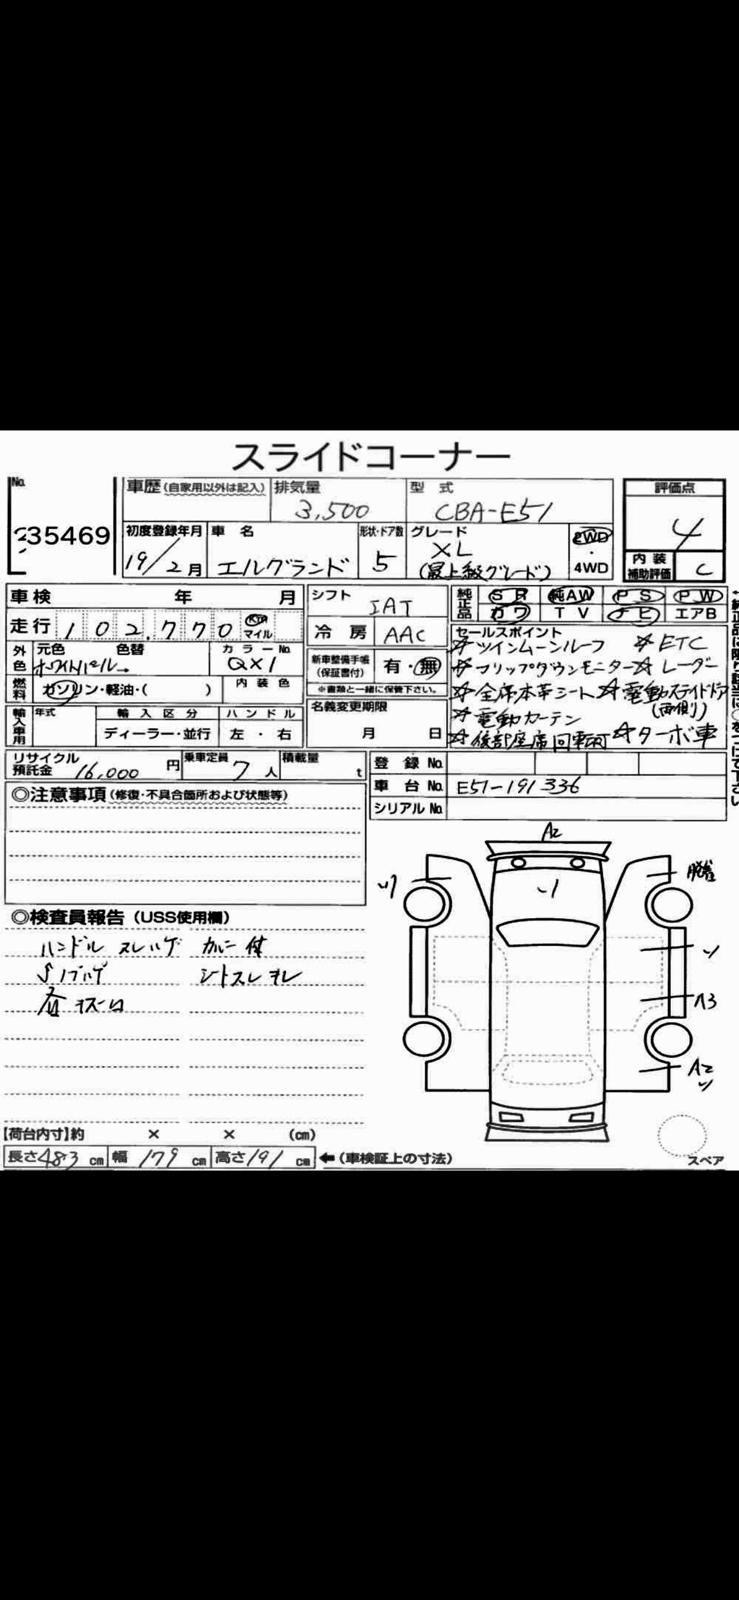 スライドコーナー
No.
35469
車歴(自家用以外は記入)
排気量
3,500
型式
CBA-E51
評価点
4
初度登録年月
19/2月
車名
エルグランド
形状・ドア数
5
グレード
XL
(最上級グレード)
2WD
・
4WD
内装
補助評価
C
車検 年 月
走行 102,770 Km マイル
外色
元色 色替
ホワイトパール→
カラーNo.
QX1
燃料
ガソリン・軽油・( )
内装色
輸入車用
年式
輸入区分
ディーラー・並行
ハンドル
左・右
シフト
IAT
冷房
AAC
新車整備手帳
(保証書付)
有・無
※書類と一緒に保管下さい。
名義変更期限
月 日
純正品
SR 純AW PS PW
カワ TV ナビ エアB
セールスポイント
☆ツインムーンルーフ ☆ETC
☆フリップダウンモニター☆レーダー
☆全席本革シート☆電動スライドドア
(両側)
☆電動カーテン
☆後部座席回転可 ☆ターボ車
リサイクル
預託金 16,000円
乗車定員 7人
積載量 t
登録No.
車台No. E51-191336
シリアルNo.
◎注意事項(修復・不具合箇所および状態等)
◎検査員報告(USS使用欄)
ハンドル スレ ハゲ カバー付
シートスレ
A2
脱着
A3
A2
【荷台内寸】約 × × (cm)
長さ483cm 幅179cm 高さ191cm ←(車検証上の寸法)
スペア